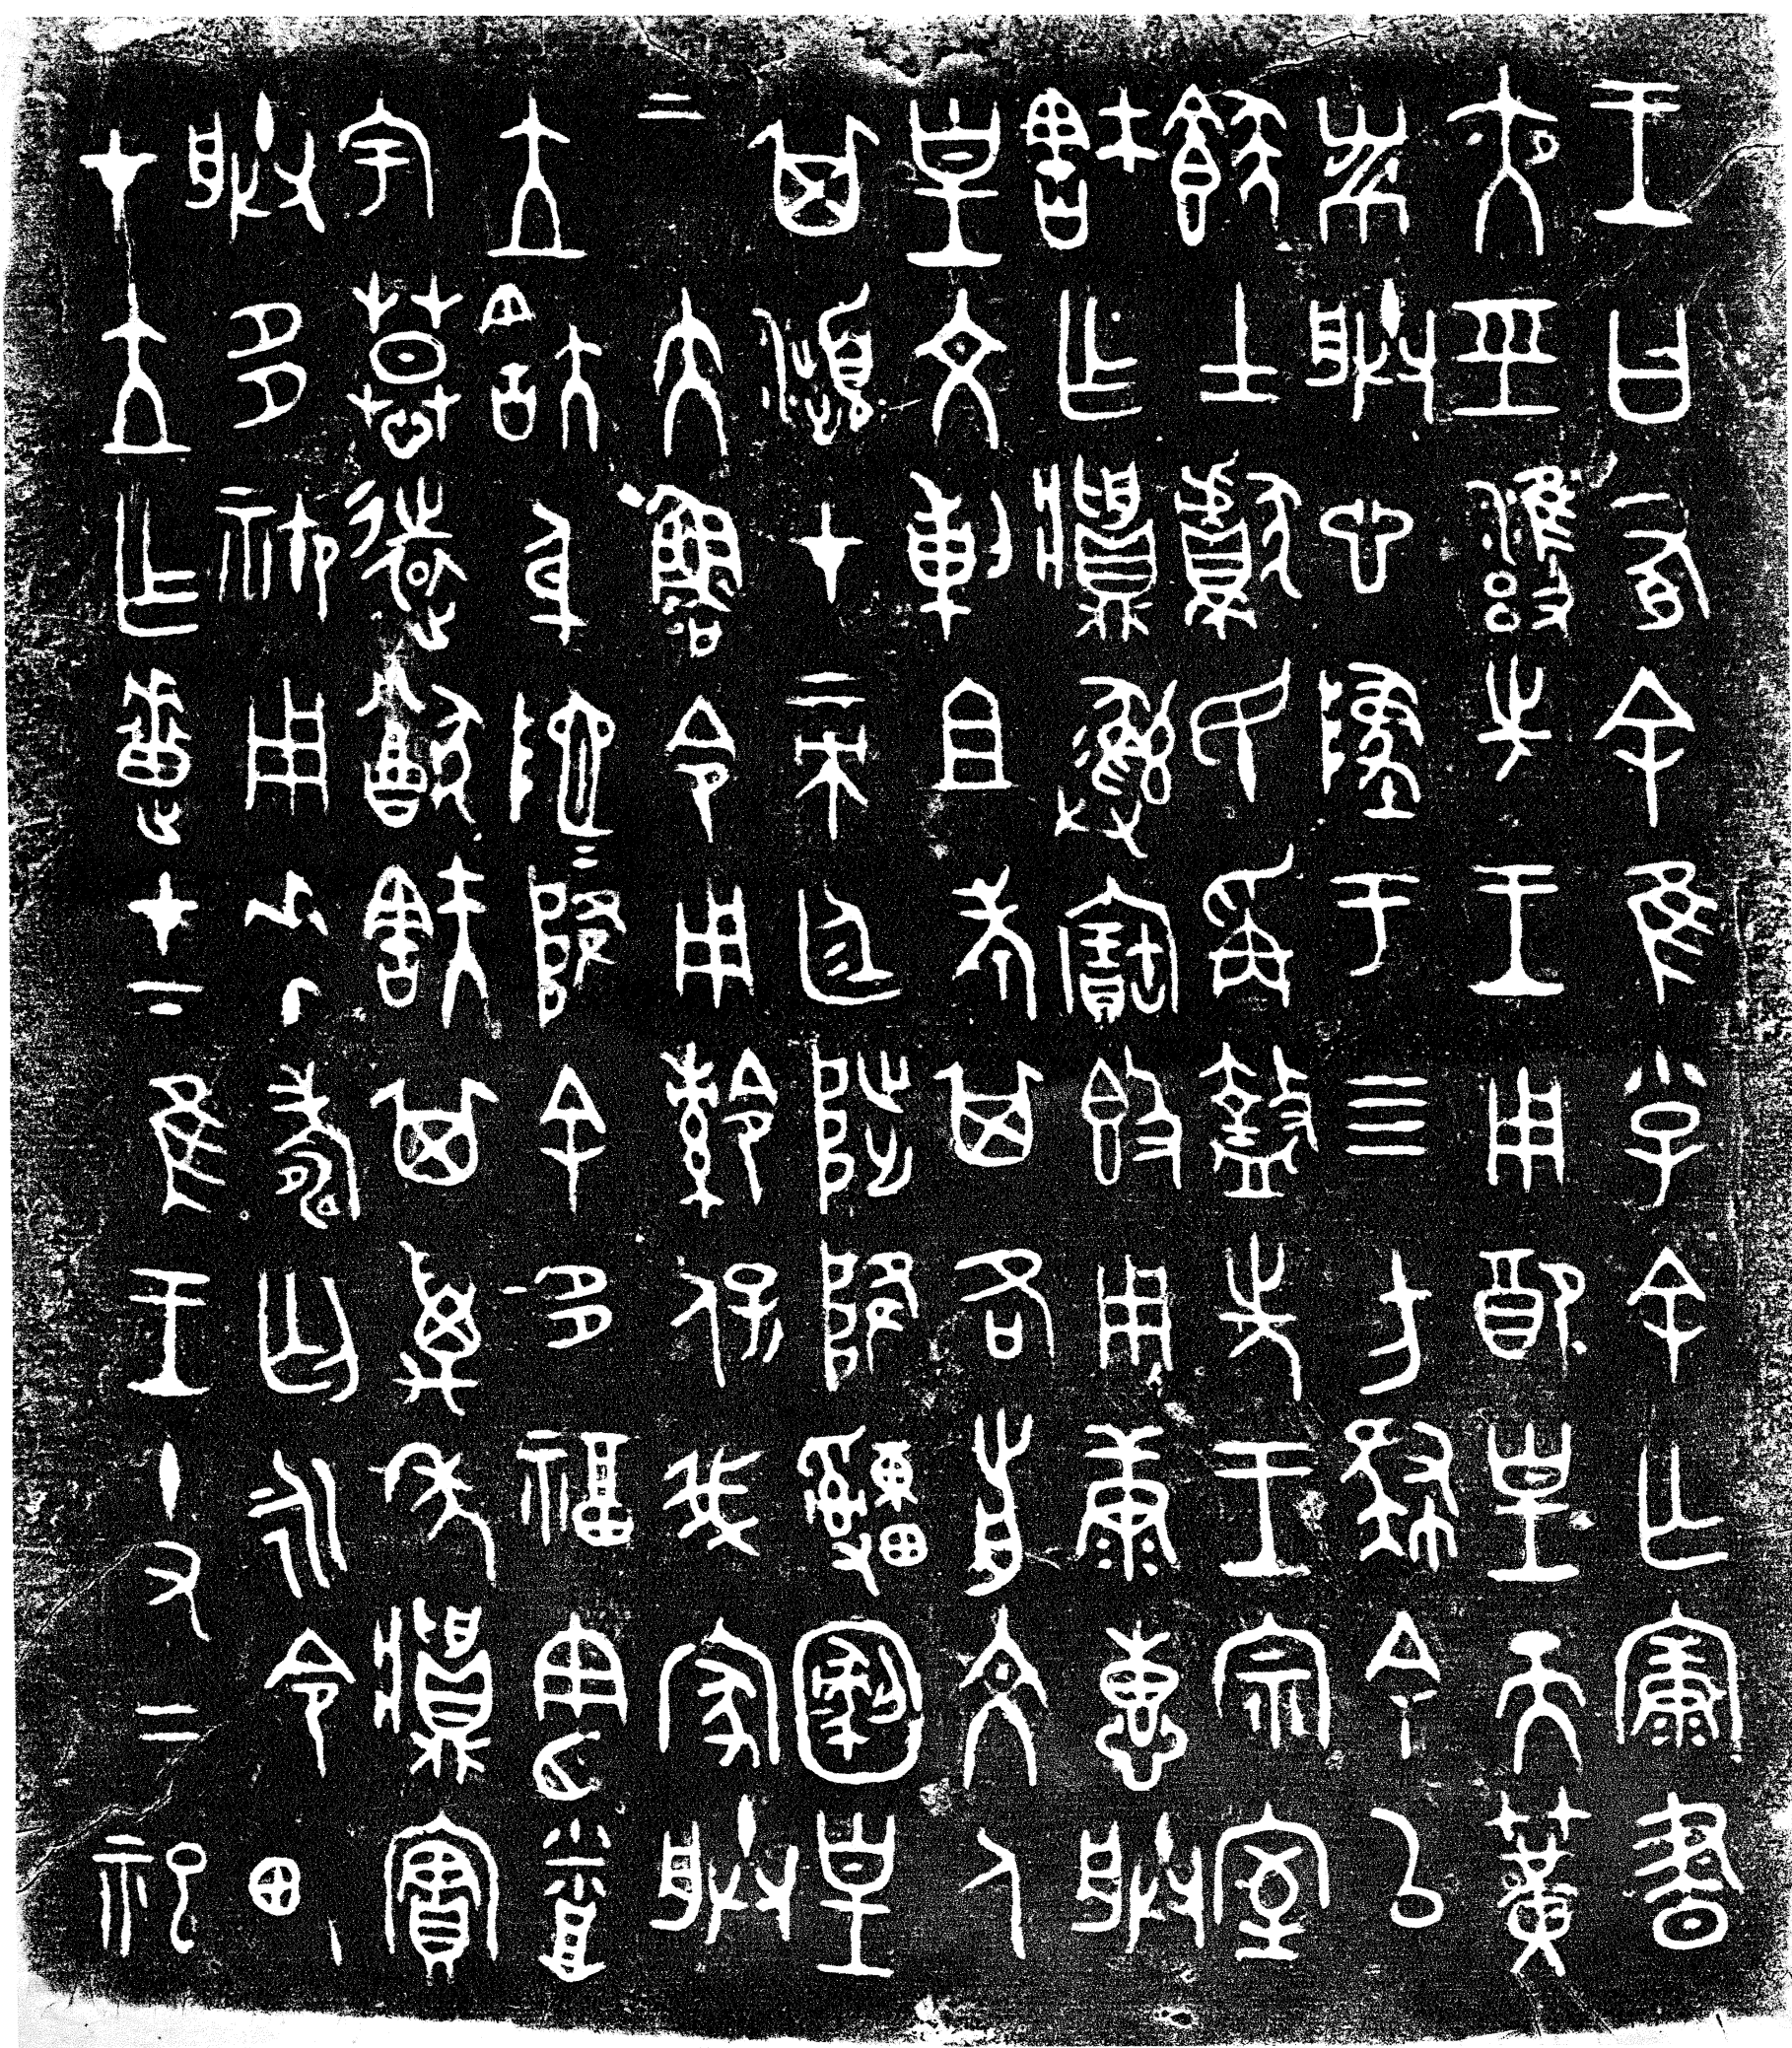 王曰有余隹小子余亡康晝
夜巠雍先王用配皇天簧
黹朕心墜于四方肆余以
𩛥士獻民爯盭先王宗室
㝬作𩰬彝寶簋用康惠朕
皇文剌且考其各前文人
其瀕才帝廷陟降申恪皇
帝大魯令用令保我家朕
立㝬身阤阤降余多福憲烝
宇慕遠猷㝬其萬年𩰬實
朕多禦用𠦪壽匄永令畯
才立乍疐才下隹王十又二祀